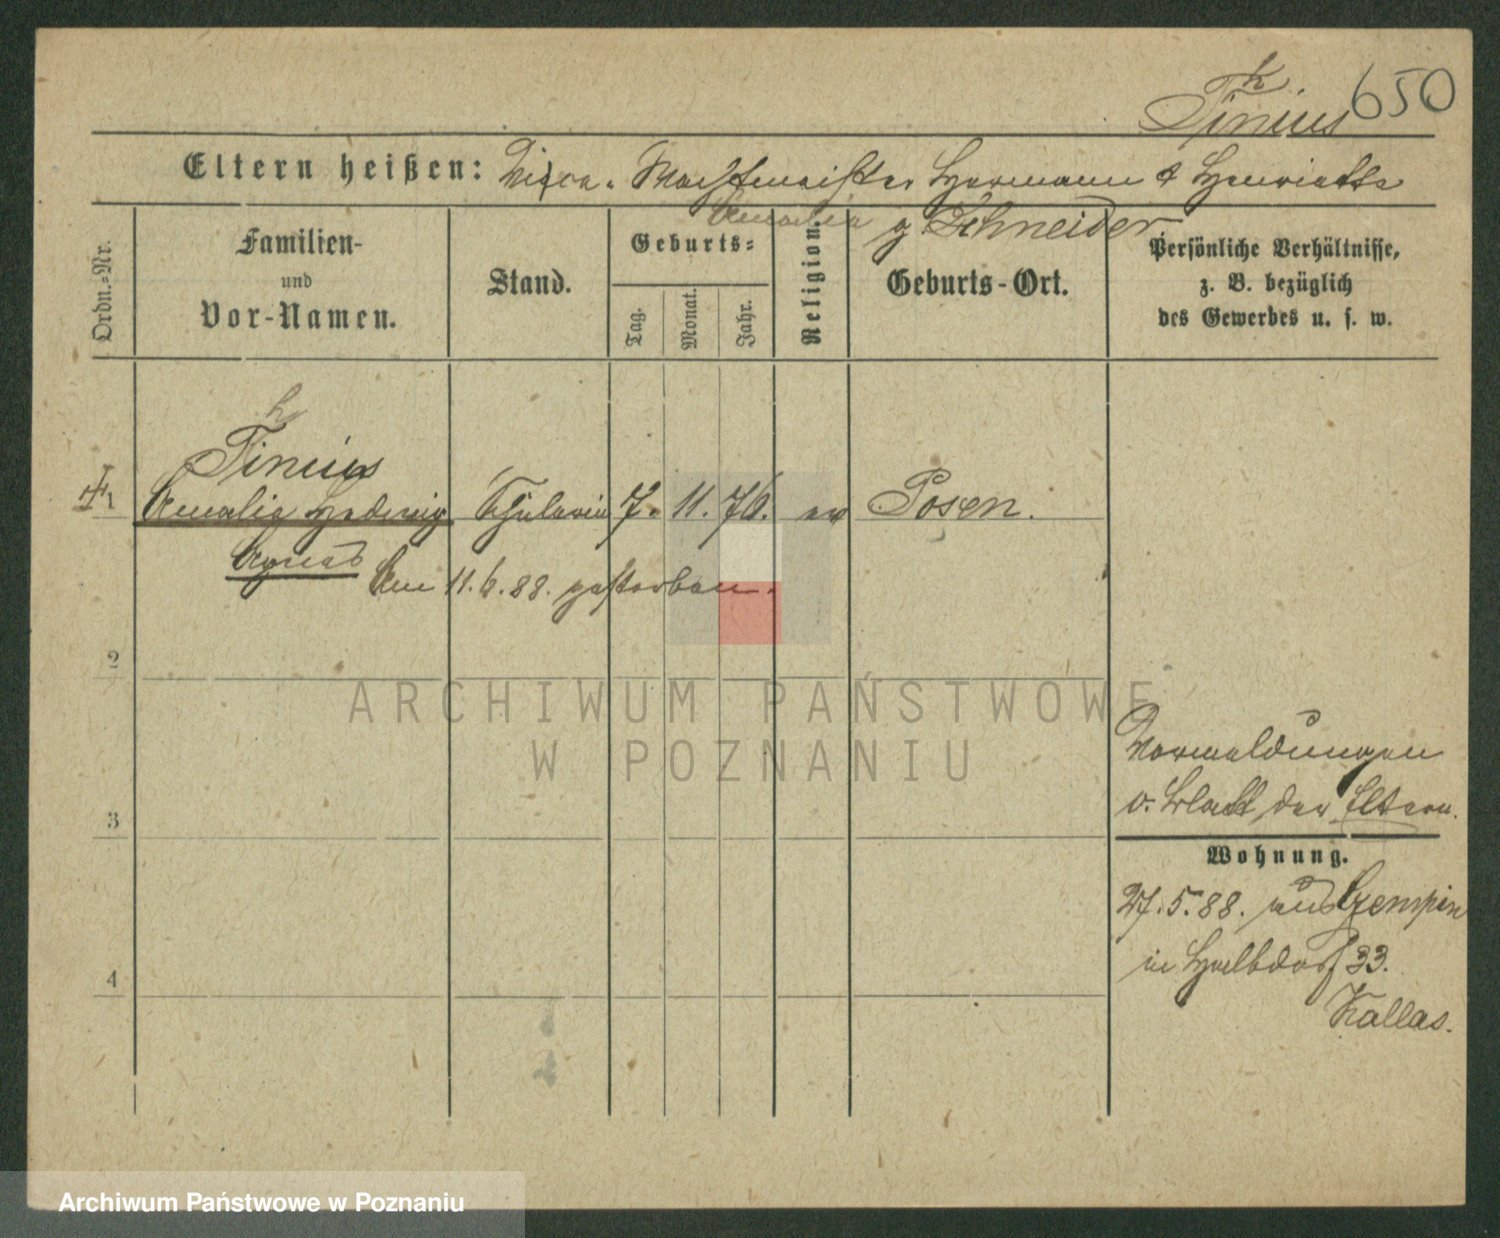 h
Tinius 650
Eltern heißen: Vice-Wachtmeister Hermann & Henriette
Amalia g Schneider
Ordn.-Nr.
Familien-
und
Vor-Namen.
Stand.
Geburts-
Tag.
Monat.
Jahr.
Religion.
Geburts-Ort.
Persönliche Verhältnisse,
z. B. bezüglich
des Gewerbes u. s. w.
h
Tinius
1 Amalie Hedwig Schülerin 7. 11. 76. ev Posen.
Agnes
Am 11.6.88. gestorben.
2
ARCHIWUM PAŃSTWOWE
W POZNANIU
Vormeldungen
v. Blatt der Eltern.
3
Wohnung.
27.5.88. aus Czempin
in Halbdorf 33.
Kallas.
4
Archiwum Państwowe w Poznaniu